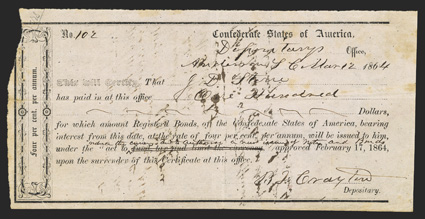 No. 102
Confederate States of America.
Office,
S C Mar 12 1864
This will Certify, That J. D. Stone
has paid in at this office One Hundred
Dollars,
for which amount Registered Bonds, of the Confederate States of America, bearing
interest from this date, at the rate of four per cent. per annum, will be issued to him,
under the "act to approved February 17, 1864,
upon the surrender of this Certificate at this office.
B. F. Crayton
Depositary.
Four per cent. per annum.